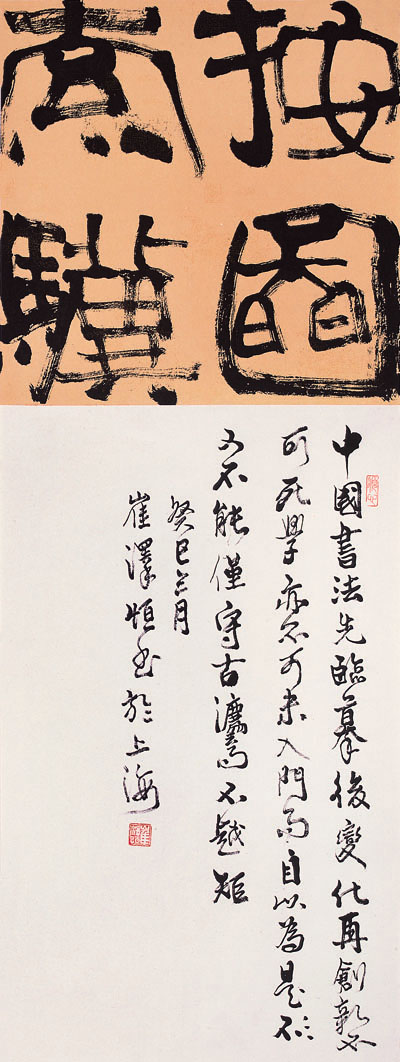 按圖
索驥
中國書法先臨摹後變化再創新不
可死學亦不可未入門而自以為是
又不能僅守古灋而不越矩
癸巳三月
崔澤恒書於上海